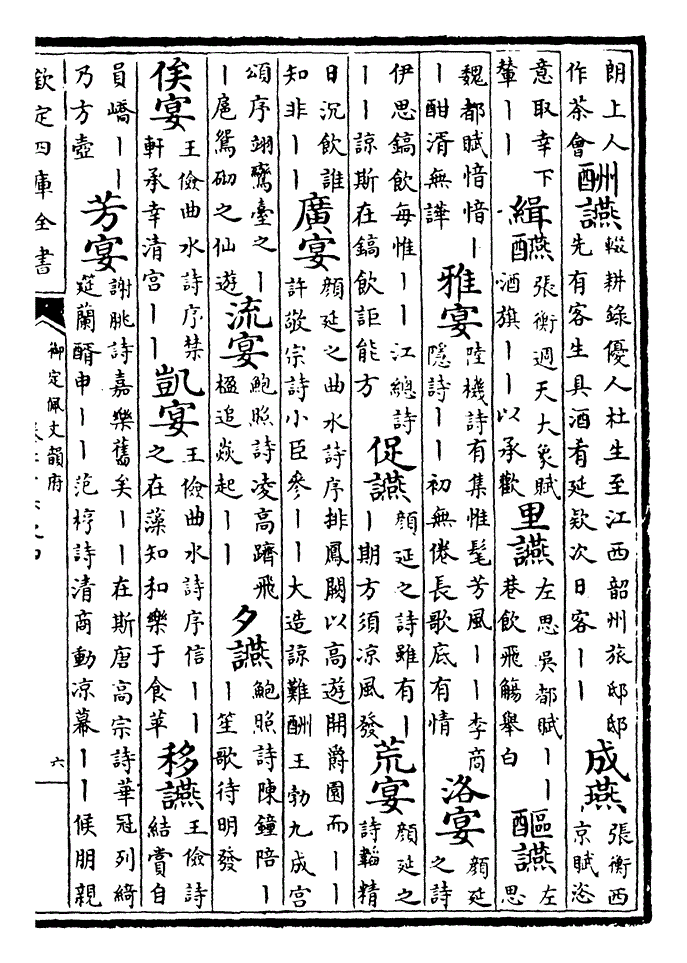 朗上人作茶會酬讌輟耕錄優人杜生至江西韶州旅邸邸先有客生具酒肴延款次日客丨丨成燕張衡西京賦恣
意取幸下輦丨丨緝醼張衡週天大象賦酒旗丨丨以承歡里讌左思吳都賦丨丨巷飲飛觴舉白醧讌左思
魏都賦愔愔丨丨酣湑無譁雅宴陸機詩有集惟髦芳風丨丨李商隱詩丨丨初無倦長歌底有情洛宴顏延之詩
伊思鎬飲每惟丨丨江總詩丨丨諒斯在鎬飲詎能方促讌顏延之詩雖有丨丨期方須凉風發荒宴顏延之詩韜精
日沉飲誰知非丨丨廣宴顏延之曲水詩序排鳳闕以高遊開爵園而丨丨許敬宗詩小臣參丨丨大造諒難酬王勃九成宮
頌序翊鸞臺之丨丨扈鴛砌之仙遊流宴鮑照詩凌高躋飛楹追焱起丨丨夕讌鮑照詩陳鐘陪丨丨笙歌待明發
俟宴王儉曲水詩序禁軒承幸清宮丨丨凱宴王儉曲水詩序信丨丨之在藻知和樂于食苹移讌王儉詩結賞自
員嶠丨丨乃方壺芳宴謝朓詩嘉樂舊矣丨丨在斯唐高宗詩華冠列綺筵蘭醑申丨丨范椁詩清商動凉幕丨丨候朋親
欽定四庫全書
御定佩文韻府
六